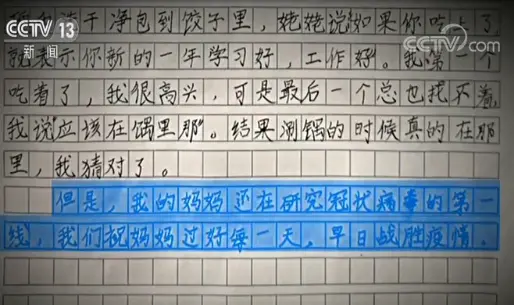 CCTV 13
新闻
CCTV.com
洗干净包到饺子里,姥姥说如果你吃上了
就表示你新的一年学习好,工作好。我第一个
吃着了,我很高兴,可是最后一个总也找不着,
我说"应该在锅里那"。结果涮锅的时候真的在那
里,我猜对了。
但是,我的妈妈还在研究冠状病毒的第一
线,我们祝妈妈过好每一天,早日战胜疫情。